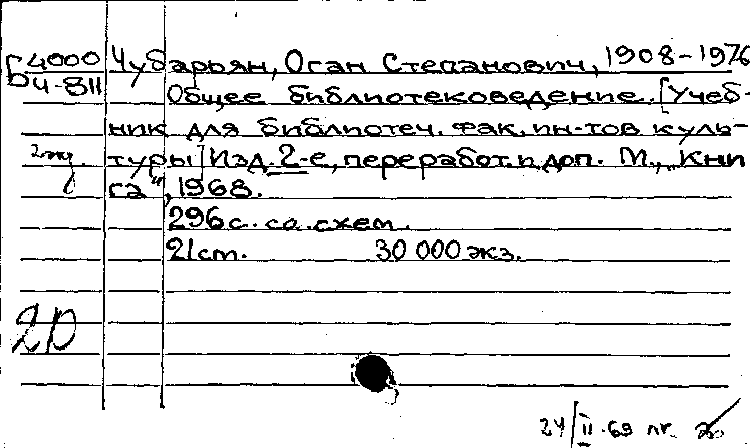 Б 4000 Чубарьян, Оган Степанович, 1908-1976
Ч-811 Общее библиотековедение. [Учеб-
ник для библиотеч. фак. ин-тов куль-
туры] Изд. 2-е, переработ. и доп. М., „Кни
га", 1968.
296 с. со схем.
21 см. 30 000 экз.
24/II-69